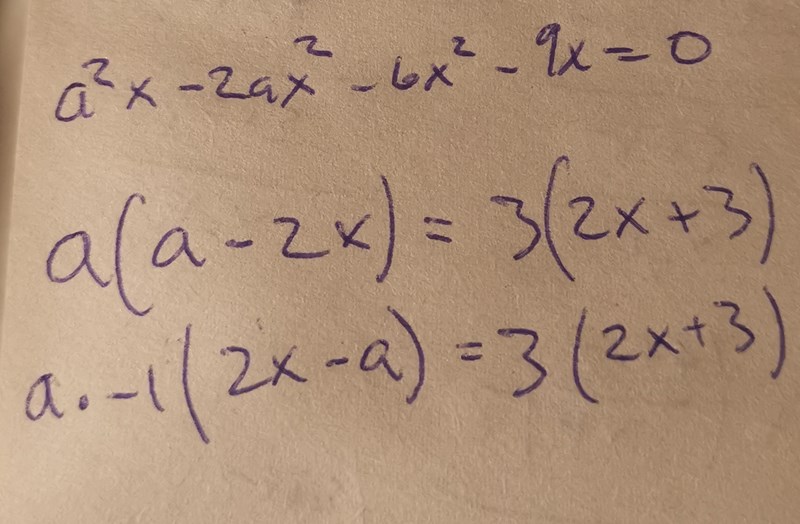 a²x - 2ax² - 6x² - 9x = 0
a(a - 2x) = 3(2x + 3)
a · -1(2x - a) = 3(2x + 3)